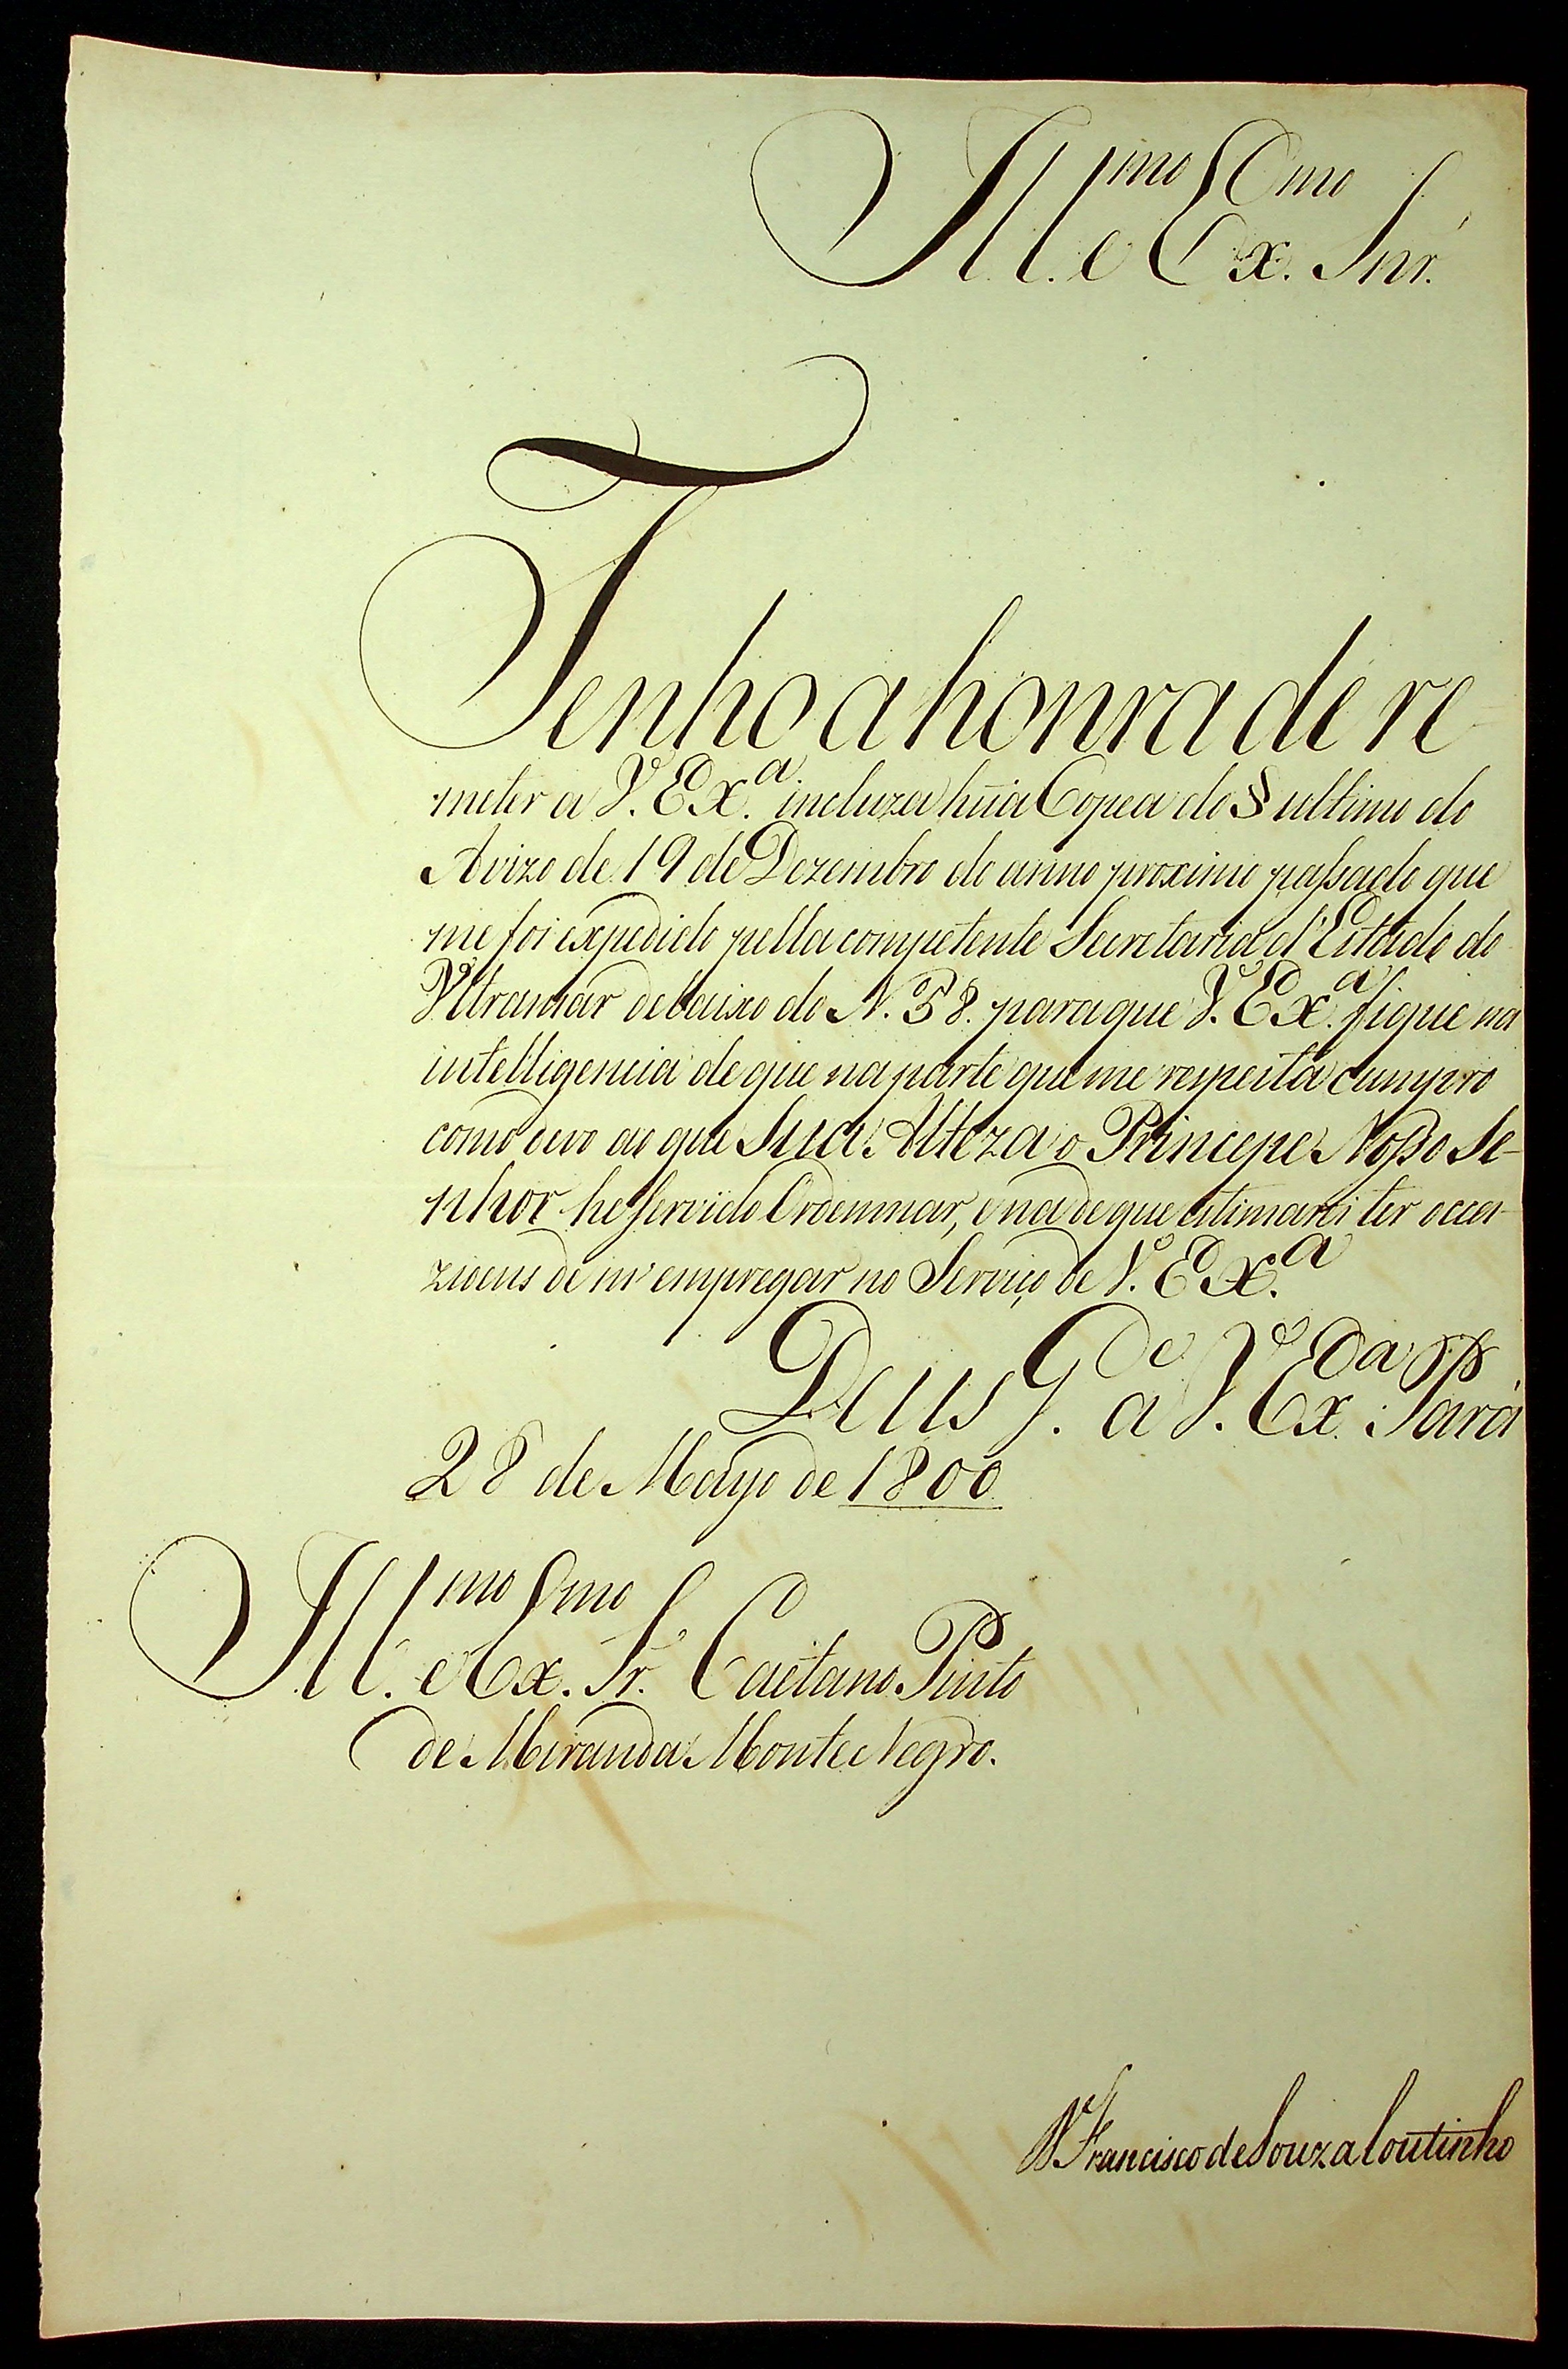 Ill.mo e Ex.mo Snr.
Tenho a honra de re-
meter a V. Ex.a incluza hũa Copea do § ultimo do
Avizo de 19 de Dezembro do anno proximo passado que
me foi expedido pella competente Secretaria d'Estado do
Vltramar debaixo do N. 58. para que V. Ex.a fique na
intelligencia de que na parte que me respeita cumpro
como devo ao que Sua Alteza o Principe Nosso Se-
nhor he servido Ordennar, e na de que estimarei ter occa-
zioens de m'empregar no Serviço de V. Ex.a
Deus G.de a V. Ex.a Pará
28 de Mayo de 1800
Ill.mo e Ex.mo Sr. Caetano Pinto
de Miranda Monte Negro.
D. Francisco de Souza Coutinho